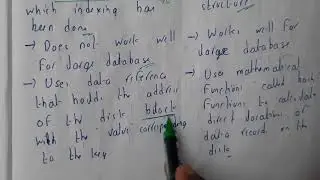 which indexing has
been done
→ Does not work well
for large database
→ Uses data reference
that holds the address
of the disk bdoct
with the value corresponding
to the key
structure
→ Works well for
large database
→ Uses mathematical
functions called hash
functions to calculate
direct locations of
data record on the
disk